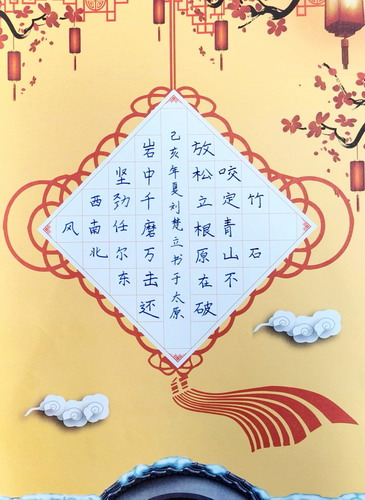 竹石
咬定青山不
放松立根原在破
岩中千磨万击还
坚劲任尔东
西南北
风
己亥年夏刘楚立书于太原